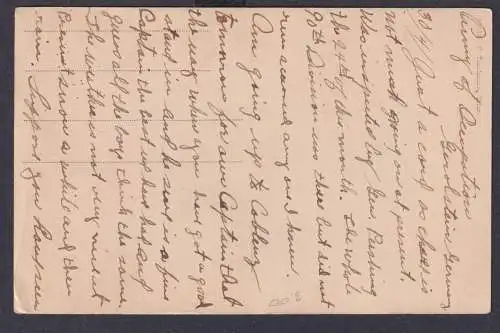 Army of Occupation
Gerolstein Germany
Just a card as there is
not much going on at present.
Was inspected by Gen. Pershing
the 24th of the month. The whole
90th Division was there but did not
run across any one I knew.
Am going up to Coblenz
tomorrow for our Captain that
the way when you have got a good
stand in and he sure is a fine
Captain the best we had and
guess all the boys think the same.
The weather is not very nice at
Present snows a while and then
rain. Suppose you have seen